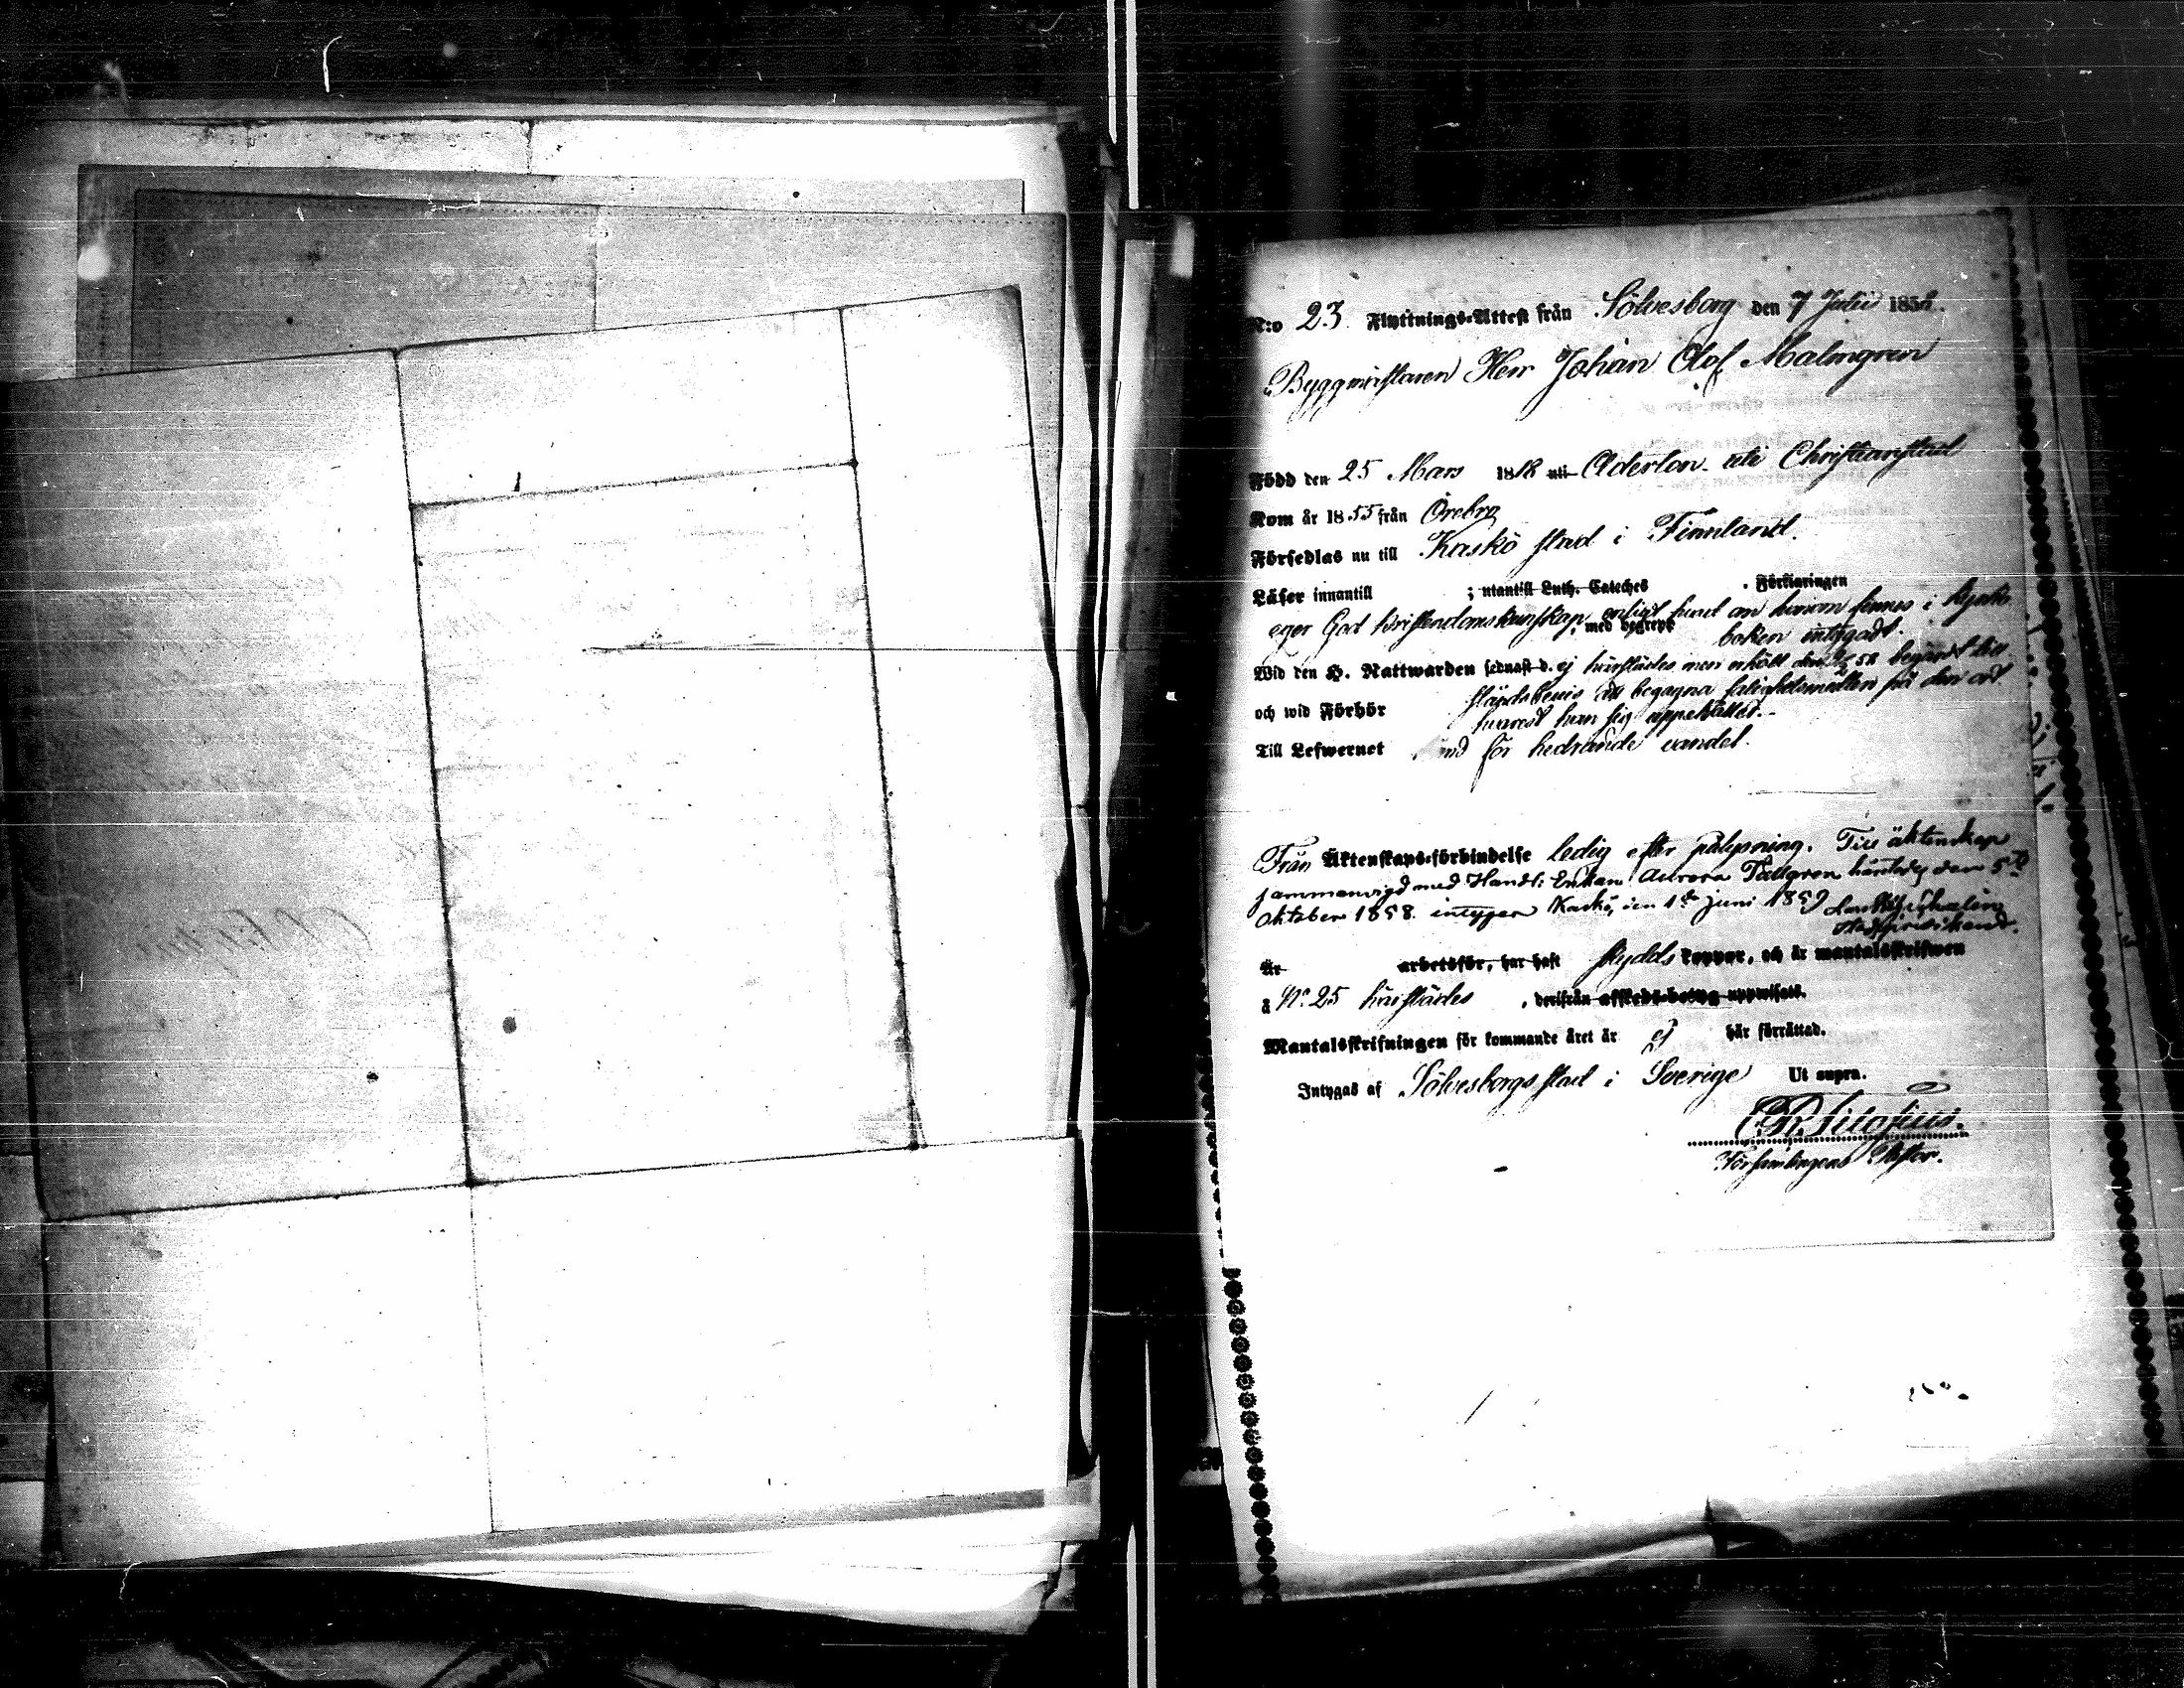 N:o 23 Flyttnings-Attest från Sölvesborg den 7 Julii 1858.
Byggmästaren Herr Johan Olof Malmgren
Född den 25 Mars 1818 uti Christianstad
Kom år 1855 från Örebro
Försedlas nu till Kaskö stad i Finnland.
Läser innantill ; utantill Luth. Cateches . Förklaringen
eger God kristendomskunskap, enligt hvad om honom finnes i kyrko
, med begrepp boken intygadt.
Wid den H. Nattwarden sednast d. ej härstädes men erhöll den 58 begärdt till
ståndsbevis att begagna salighetsmedlen på den ort
och wid Förhör hvarest han sig uppehållit.
Till Lefwernet känd för hedrande vandel.
Från Äktenskaps-förbindelse ledig efter pålysning. Till äktenskap
sammanvigd med Handl: Enkan Aurora Tallgren härstädes den 5te
Oktober 1858 intygar Kaskö, den 1ste Juni 1859
Är arbetsför, har haft skydds koppor, och är mantalsskrifwen
å No 25 härstädes , derifrån afskeds-betyg uppwisatt.
Mantalsskrifningen för kommande året är ej här förrättad.
Intygas af Sölvesborgs stad i Sverige Ut supra.
Församlingens Pastor.